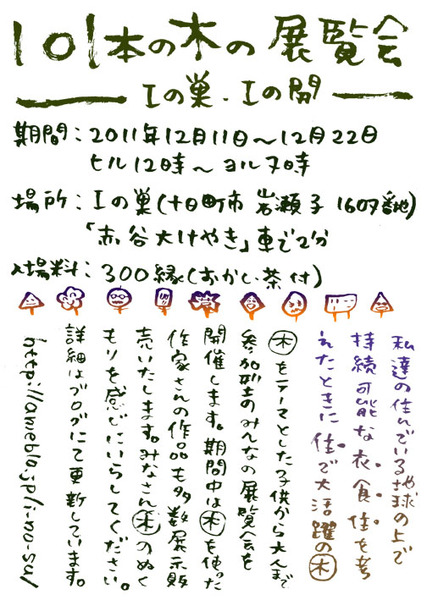 101本の木の展覧会
Iの巣・Iの開
期間：2011年12月11日～12月22日
ヒル12時～ヨル7時
場所：Iの巣（十日町市 岩瀬子1607番地）
「赤谷大けやき」車で2分
入場料：300縁（おかし・茶付）
私達の住んでいる地球の上で
持続可能な衣。食。住を考
えたときに住で大活躍の木
木をテーマとした子供から大人まで
参加型のみんなの展覧会を
開催します。期間中は木を使った
作家さんの作品も多数展示販
売いたします。みなさん木のぬく
もりを感じにいらしてください。
詳細はブログにて更新しています。
http://ameblo.jp/i-no-su/